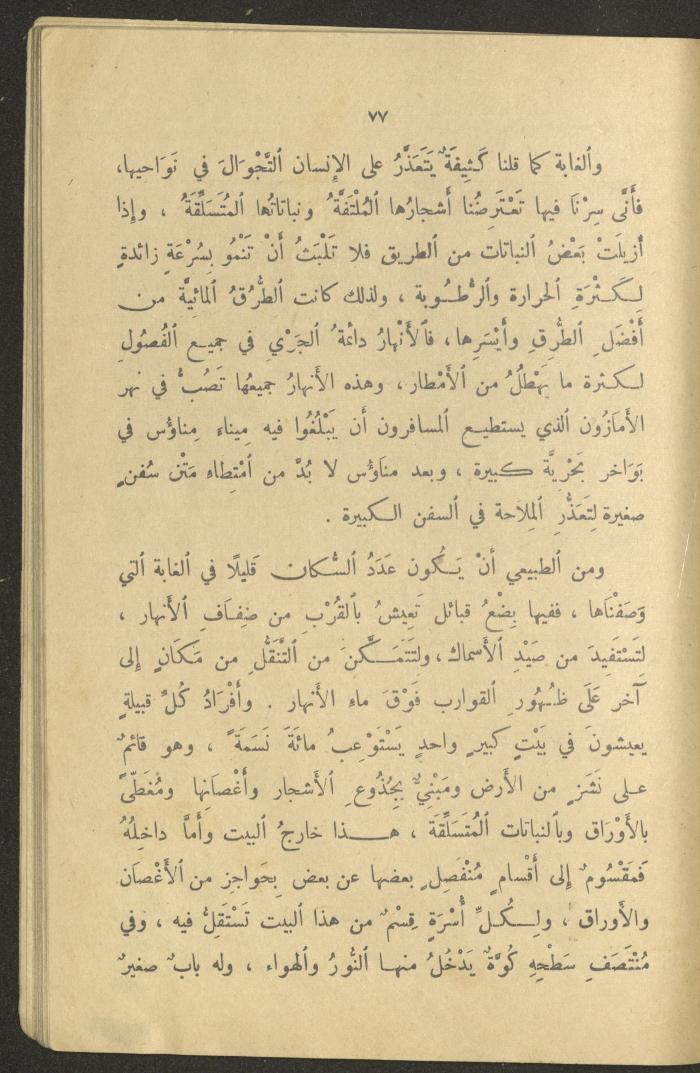 ٧٧
وٱلغابة كما قلنا كَثِيفَةٌ يَتَعَذَّرُ على الإِنسان ٱلتَّجْوَالَ في نَوَاحيها،
فأَنَّى سِرْنَا فيها تَعْتَرِضُنا أَشجارُها ٱلمُلْتَفَّةُ ونباتاتُها ٱلمتَسَلِّقَةُ ، وإِذا
أُزيلَتْ بَعْضُ ٱلنباتات من ٱلطريق فلا تَلْبَثُ أَنْ تَنْمُو بسُرْعَةٍ زائدةٍ
لِكَثْرَةِ الحرارة وٱلرُّطـوبة ، ولذلك كانت ٱلطُّرُقُ المائيَّة من
أَفْضَلِ ٱلطُّرقِ وأَيْسَرِها، فٱلأَنْهارُ دائمةُ ٱلجَرْيِ في جميـع ٱلفُصُولِ
لـكثرة ما يَهْطِلُ من ٱلأَمْطار، وهذه الأَنهارُ جميعُها تَصُبُّ في نهر
الأَمازُون ٱلذي يستطيـع ٱلمسافرون أَن يَبْلُغُوا فيه مِيناء مِناوُس في
بَوَاخر بَحْرِيَّة كبيرة ، وبعد مناوُس لا بُدَّ من ٱمْتِطاءِ مَتْن سُفنٍ
صغيرة لِتَعَذُّرِ ٱلمِلاحة في ٱلسفن الـكبيرة .
ومن ٱلطبيعي أَنْ يَـكُون عَدَدُ ٱلسُّكان قَليلًا في ٱلغابة ٱلتي
وَصَفْنَاها ، ففيها بِضْعُ قبائل تَعيشُ بٱلقُرْبِ من ضِفَافِ ٱلأَنهار ،
لتَسْتَفِيدَ من صَيْدِ ٱلأَسماك، ولتَتَمَـكَّنَ من ٱلتَّنَقُّلِ من مَكَانٍ إِلى
آخر عَلَى ظـهُورِ ٱلقوارب فَوْقَ ماءِ الأَنهار . وأَفْرَادُ كُلِّ قبيلةٍ
يعيشونَ في بَيْتٍ كبيرٍ واحدٍ يَسْتَوْعِبُ مائَةَ نَسَمَةً ، وهو قائمٌ
عـلى نَشَزٍ من الأَرض ومَبْنِيٌّ بِجُذُوعِ ٱلأَشجار وأَغْصانِها ومُغَطًّى
بالأَوْرَاق وبٱلنباتات ٱلمُتَسَلِّقَة ، هـذا خارجُ ٱلبيت وأَمَّا داخِلُهُ
فمَقْسُومٌ إِلى أَقْسامٍ مُنْفَصِلٍ بعضها عن بعض بِحَواجِز من ٱلأَغْصان
والأَوراق ، ولِـكُـلِّ أُسْرَةٍ قِسْمٌ من هذا ٱلبيت تَسْتَقِلُّ فيه ، وفي
مُنْتَصَفِ سَطْحِهِ كُوَّةٌ يَدْخُلُ منهـا ٱلنُّورُ وٱلهواء ، وله بابٌ صغيرٌ